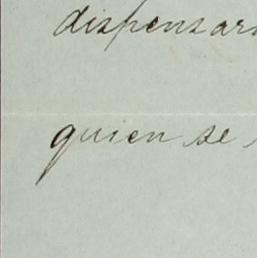 dispensar
quien se